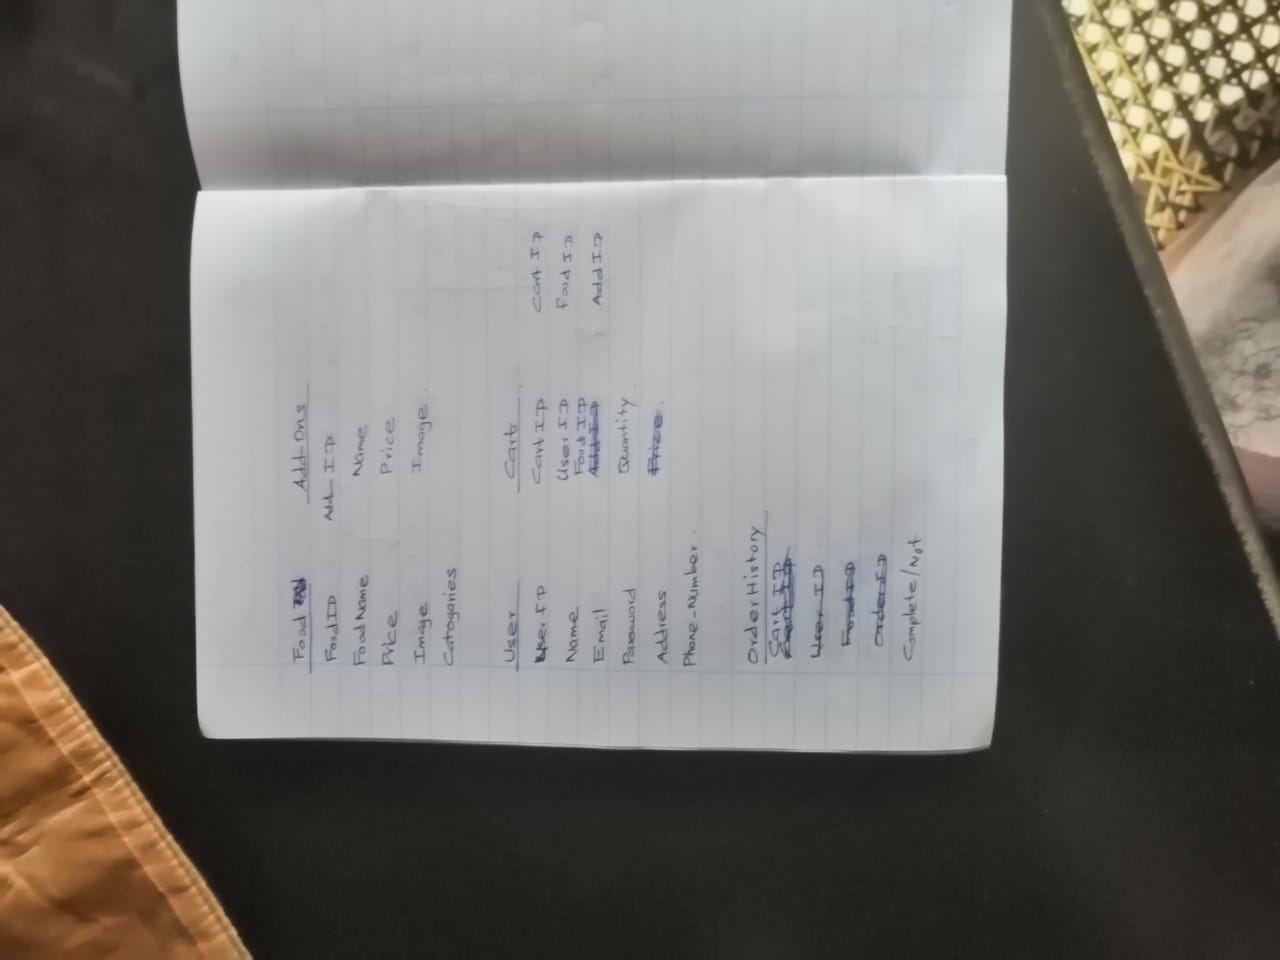 Food
FoodID
FoodName
Price
Image
Catogories
Add-Ons
Add ID
Name
Price
Image.
User
User ID
Name
Email
Password
Address
Phone-Number.
Cart
Cart ID
User ID
Food ID
Add ID
Quantity
Price.
Cart ID
Food ID
Add ID
Order History
Cart ID
User ID
Food ID
Order ID
Complete/Not